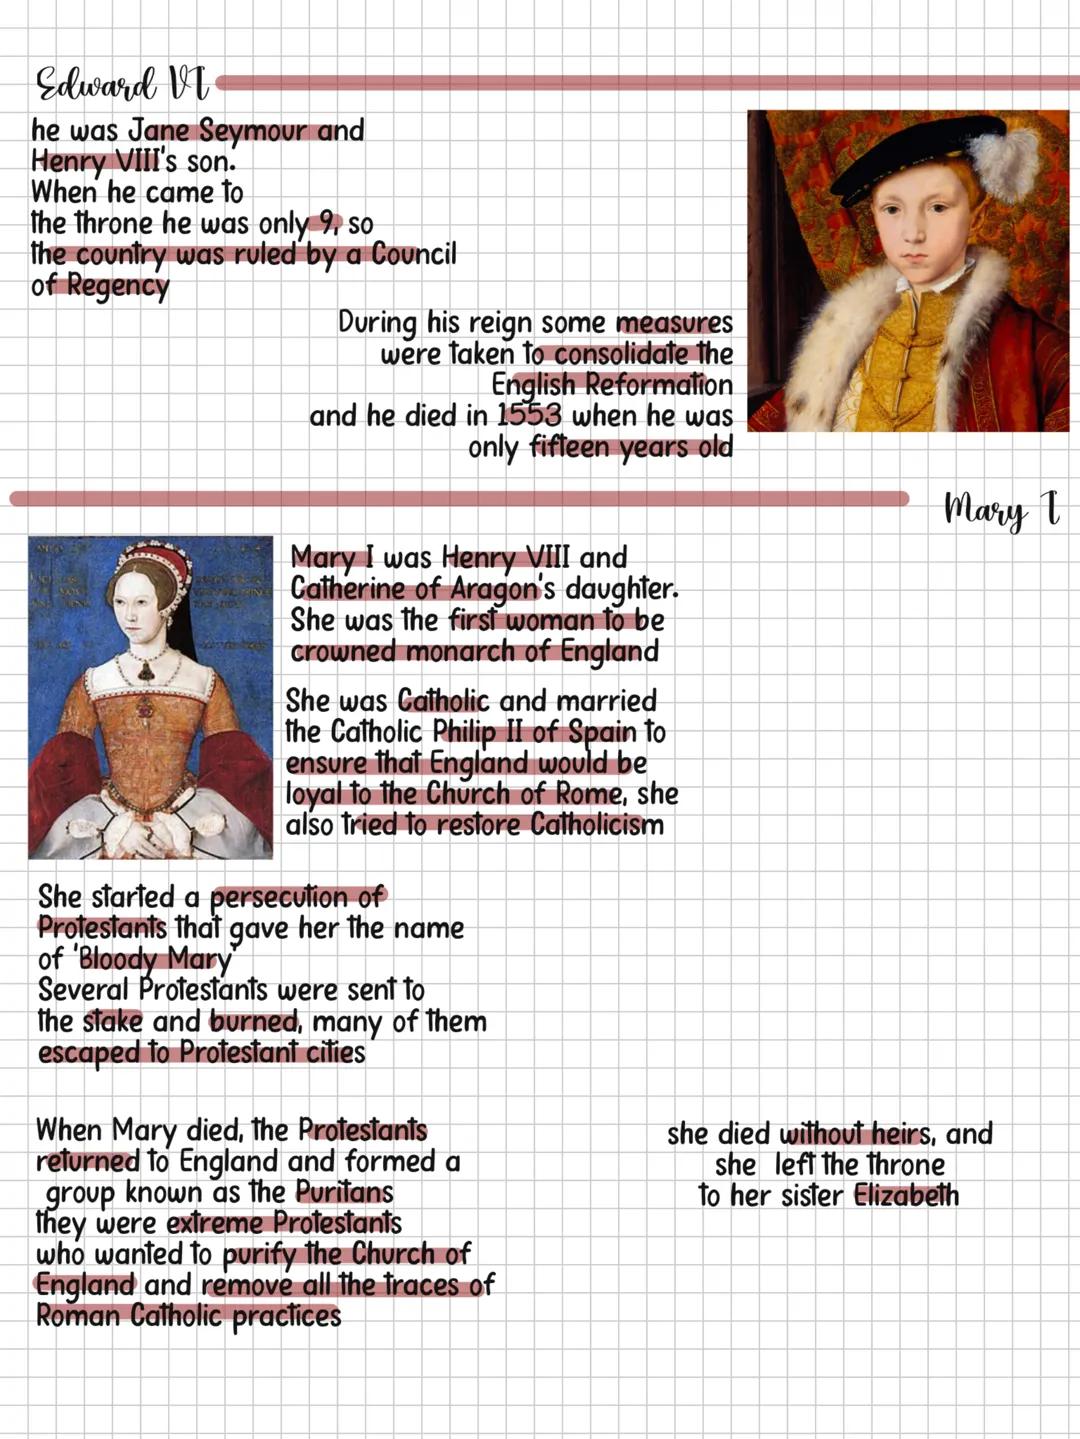 Edward VI
he was Jane Seymour and
Henry VIII's son.
When he came to
the throne he was only 9, so
the country was ruled by a Council
of Regency
During his reign some measures
were taken to consolidate the
English Reformation
and he died in 1553 when he was
only fifteen years old
Mary I
Mary I was Henry VIII and
Catherine of Aragon's daughter.
She was the first woman to be
crowned monarch of England
She was Catholic and married
the Catholic Philip II of Spain to
ensure that England would be
loyal to the Church of Rome, she
also tried to restore Catholicism
She started a persecution of
Protestants that gave her the name
of 'Bloody Mary'
Several Protestants were sent to
the stake and burned, many of them
escaped to Protestant cities
When Mary died, the Protestants
returned to England and formed a
group known as the Puritans
they were extreme Protestants
who wanted to purify the Church of
England and remove all the traces of
Roman Catholic practices
she died without heirs, and
she left the throne
to her sister Elizabeth